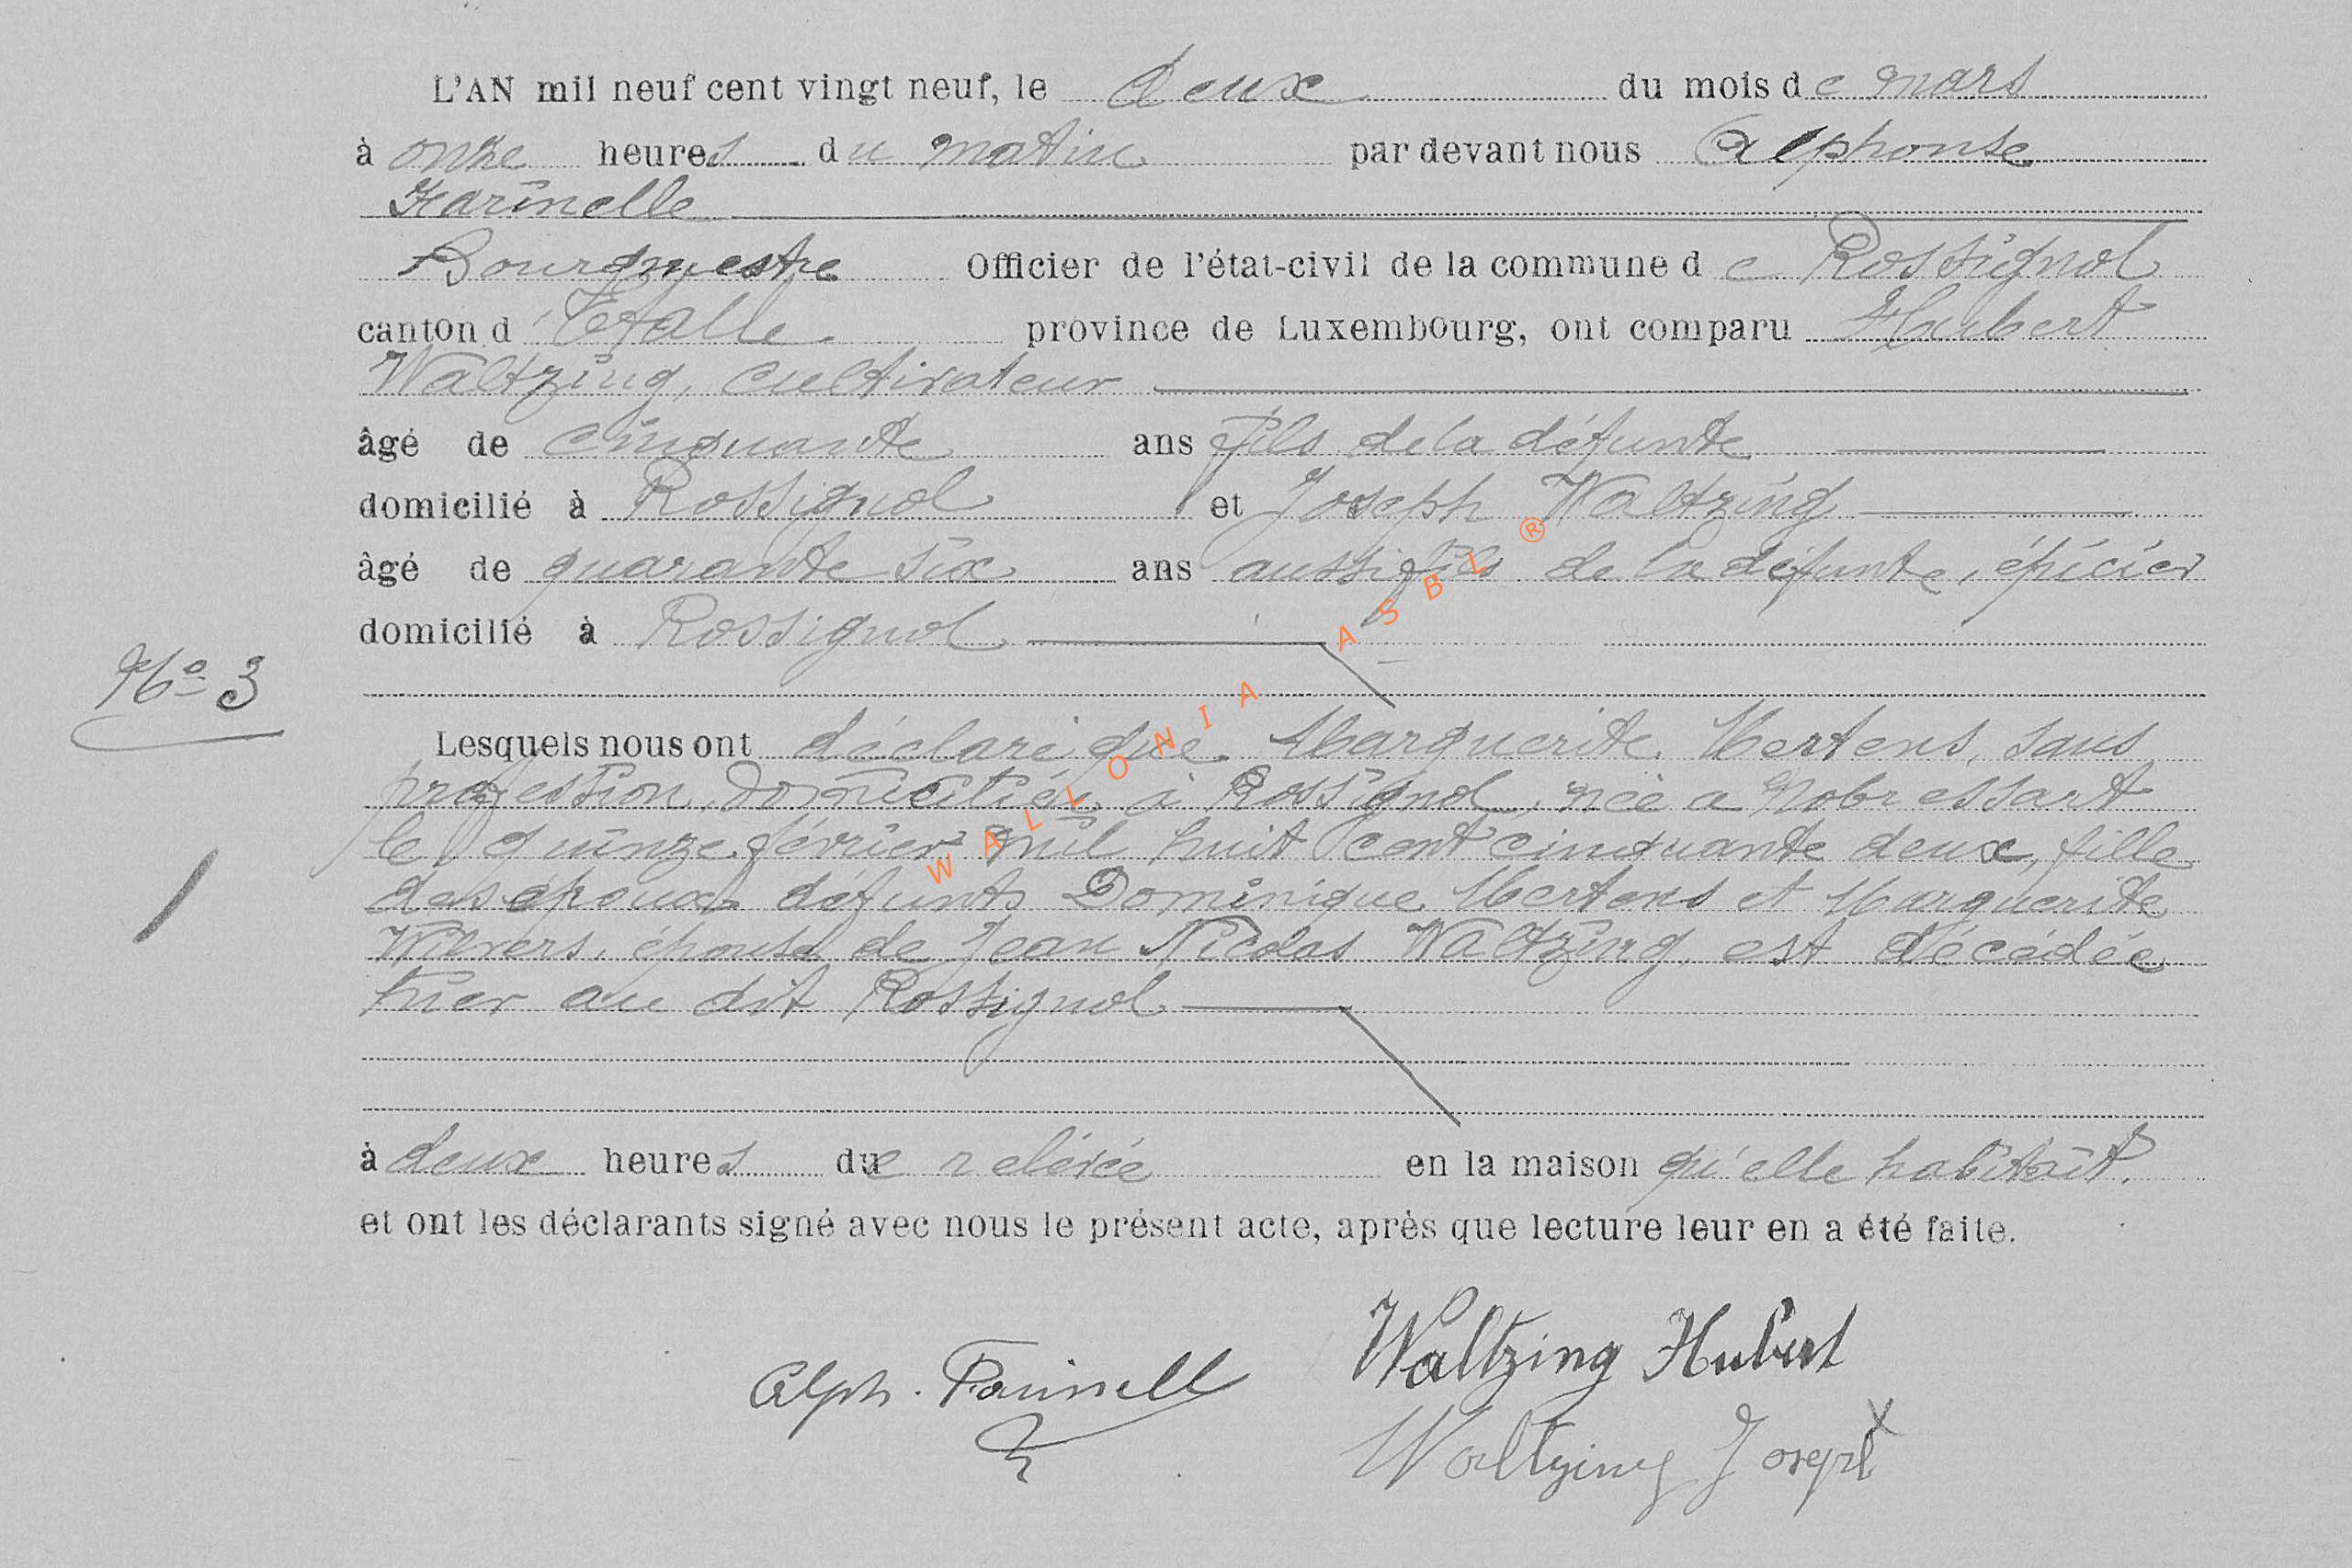 L'AN mil neuf cent vingt neuf, le deux du mois de mars
à onze heures du matin par devant nous Alphonse
Farinelle
Bourgmestre Officier de l'état-civil de la commune de Rossignol
canton d'Etalle province de Luxembourg, ont comparu Hubert
Waltzing, cultivateur
âgé de cinquante ans fils de la défunte
domicilié à Rossignol et Joseph Waltzing
âgé de quarante six ans aussi fils de la défunte, épicier
domicilié à Rossignol
No 3
Lesquels nous ont déclaré que Marguerite Mertens, sans
profession, domiciliée à Rossignol, née a Nobressart
le quinze février mil huit cent cinquante deux, fille
des époux défunts Dominique Mertens et Marguerite
épouse de Jean Nicolas Waltzing, est décédée
hier au dit Rossignol
à deux heures de relevée en la maison qu'elle habitait.
et ont les déclarants signé avec nous le présent acte, après que lecture leur en a été faite.
Waltzing Hubert
Alph. Farinelle
Waltzing Joseph
WALLONIA ASBL ®